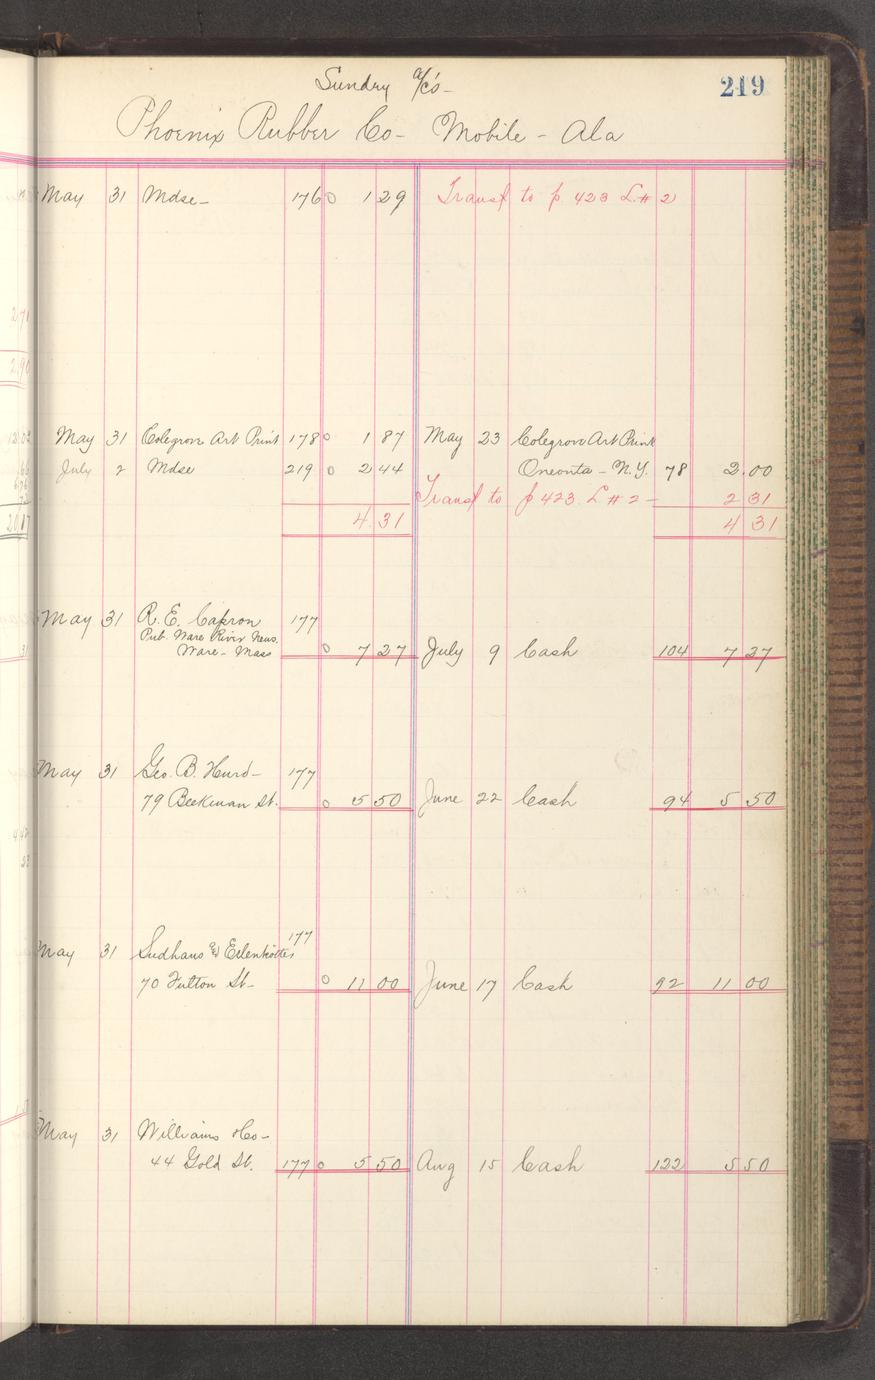 Sundry a/c's -
219
Phoenix Rubber Co - Mobile - Ala
May 31 Mdse - 176 0 1 29 Transf to p. 423 L. # 2
May 31 Colegrove Art Print 178 0 1 87 May 23 Colegrove Art Print
July 2 Mdse 219 0 2 44 Oneonta - N.Y. 78 2.00
Transf to p 423. L # 2 - 2 31
4 31 4 31
May 31 R. E. Capron 177
Pub. Ware River News.
Ware - Mass 0 7 27 July 9 Cash 104 7 27
May 31 Geo. B. Hurd - 177
79 Beekman St. 0 5 50 June 22 Cash 94 5 50
May 31 Sudhaus & 177
70 Fulton St - 0 11 00 June 17 Cash 92 11 00
May 31 Williams
44 Gold St. 177 0 5 50 Aug 15 Cash 122 5 50